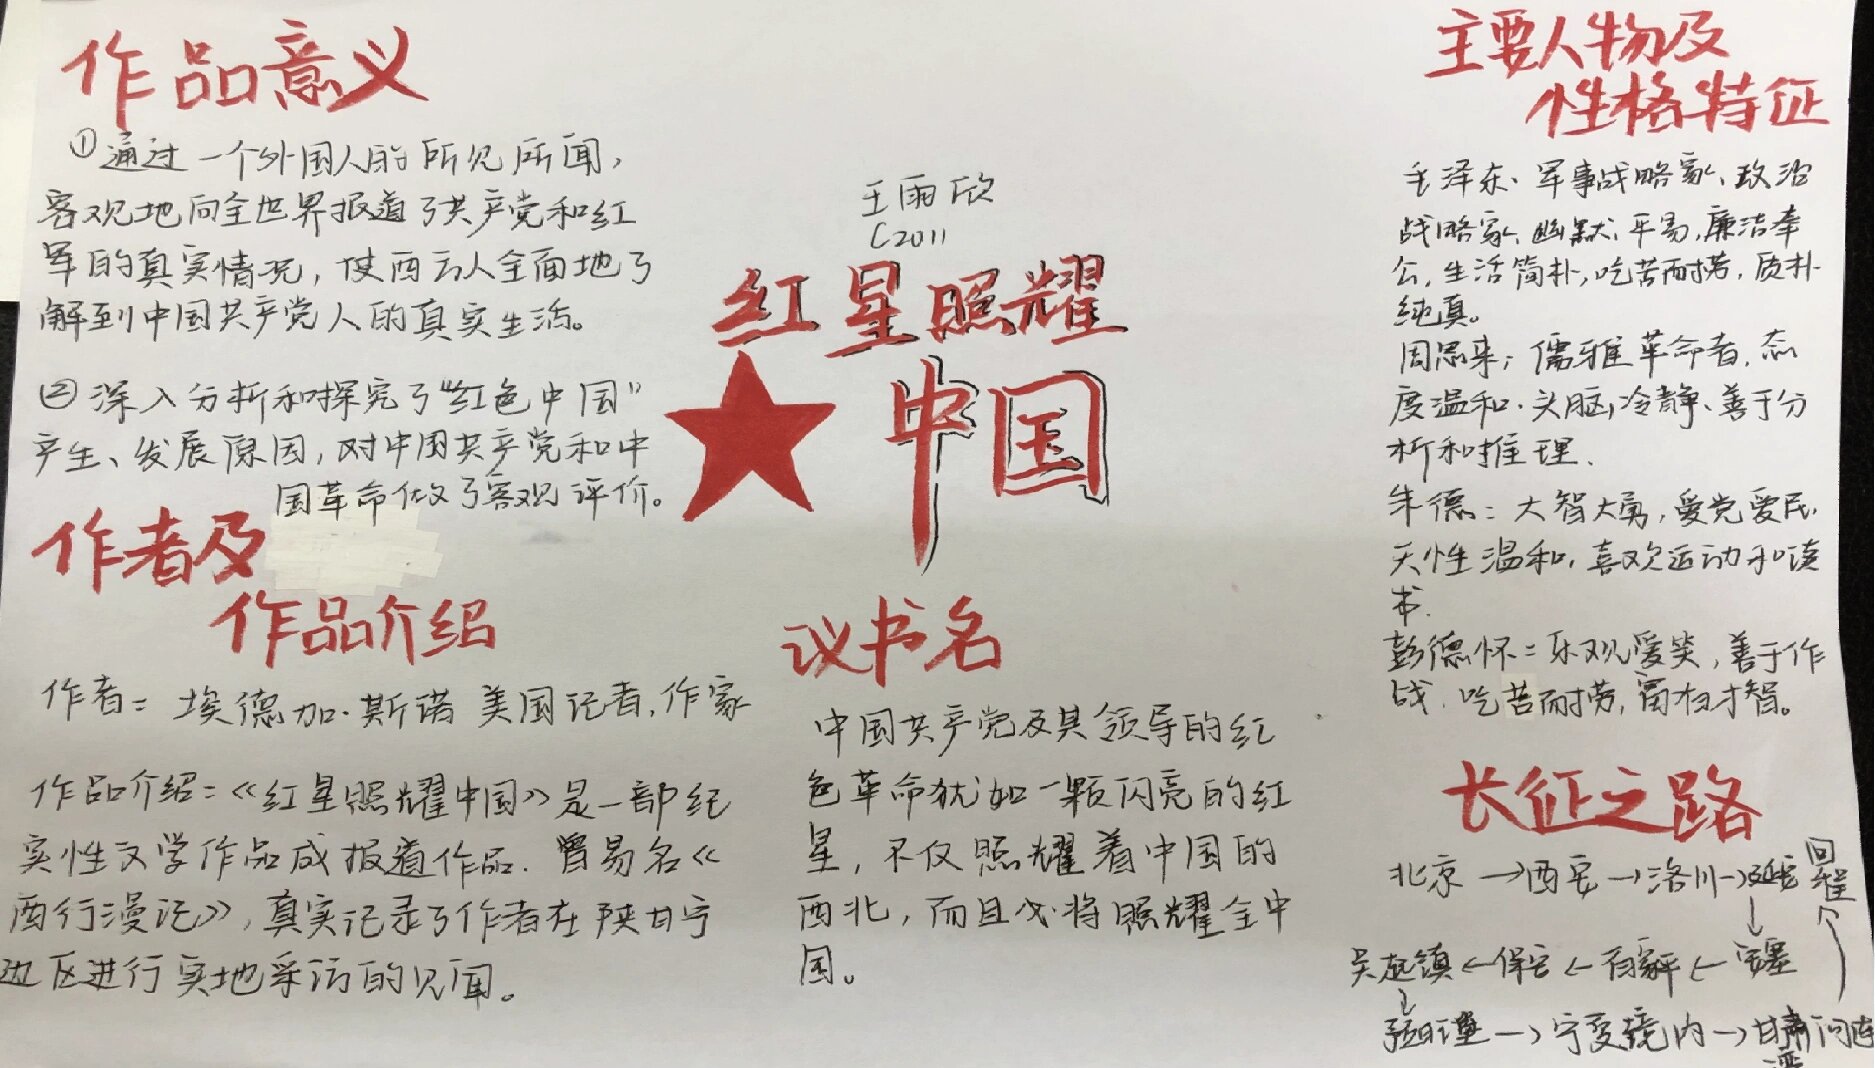 作品意义
①通过一个外国人的所见所闻，
客观地向全世界报道了共产党和红
军的真实情况，使西方人全面地了
解到中国共产党人的真实生活。
②深入分析和探究了“红色中国”
产生、发展原因，对中国共产党和中
国革命做了客观评价。
作者及
作品介绍
作者：埃德加·斯诺 美国记者，作家
作品介绍：《红星照耀中国》是一部纪
实性文学作品或报道作品．曾易名《
西行漫记》，真实记录了作者在陕甘宁
边区进行实地采访的见闻。
王雨欣
C2011
红星照耀
中国
议书名
中国共产党及其领导的红
色革命犹如一颗闪亮的红
星，不仅照耀着中国的
西北，而且必将照耀全中
国。
主要人物及
性格特征
毛泽东：军事战略家、政治
战略家，幽默，平易，廉洁奉
公，生活简朴，吃苦而耐劳，质朴
纯真。
周恩来：儒雅革命者，态
度温和．头脑冷静、善于分
析和推理．
朱德：大智大勇，爱党爱民，
天性温和，喜欢运动和读
书．
彭德怀：乐观爱笑，善于作
战．吃苦而耐劳，富有才智。
长征之路
北京→西安→洛川→延安
回程
吴起镇←保安←百家坪←安塞
→宁夏境内→甘肃